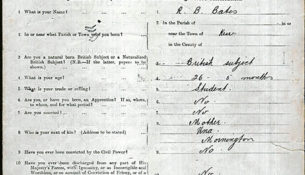 1 What is your Name?
R. B. Bates
2 In or near what Parish or Town were you born?
In the Parish of
near the Town of
in the County of
3 Are you a natural born British Subject or a Naturalized British Subject? (N.B.—If the latter, papers to be shown)
British subject
4 What is your age?
26 5 months
5 What is your trade or calling?
Student
6 Are you, or have you been, an Apprentice? If so, where, to whom, and for what period?
No
7 Are you married?
No
8 Who is your next of kin? (Address to be stated)
Mother
Mornington
9 Have you ever been convicted by the Civil Power?
No
10 Have you ever been discharged from any part of His Majesty's Forces, with Ignominy, or as Incorrigible and Worthless, or on account of Conviction of Felony, or of a